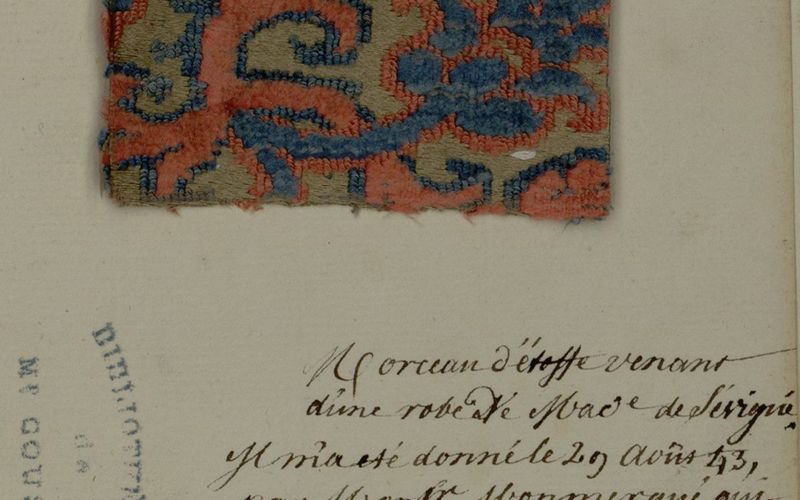 Morceau d'étoffe venant
d'une robe De Made de Sévigné.
Il m'a été donné le 29 Août 43,
par Monmerqué qui